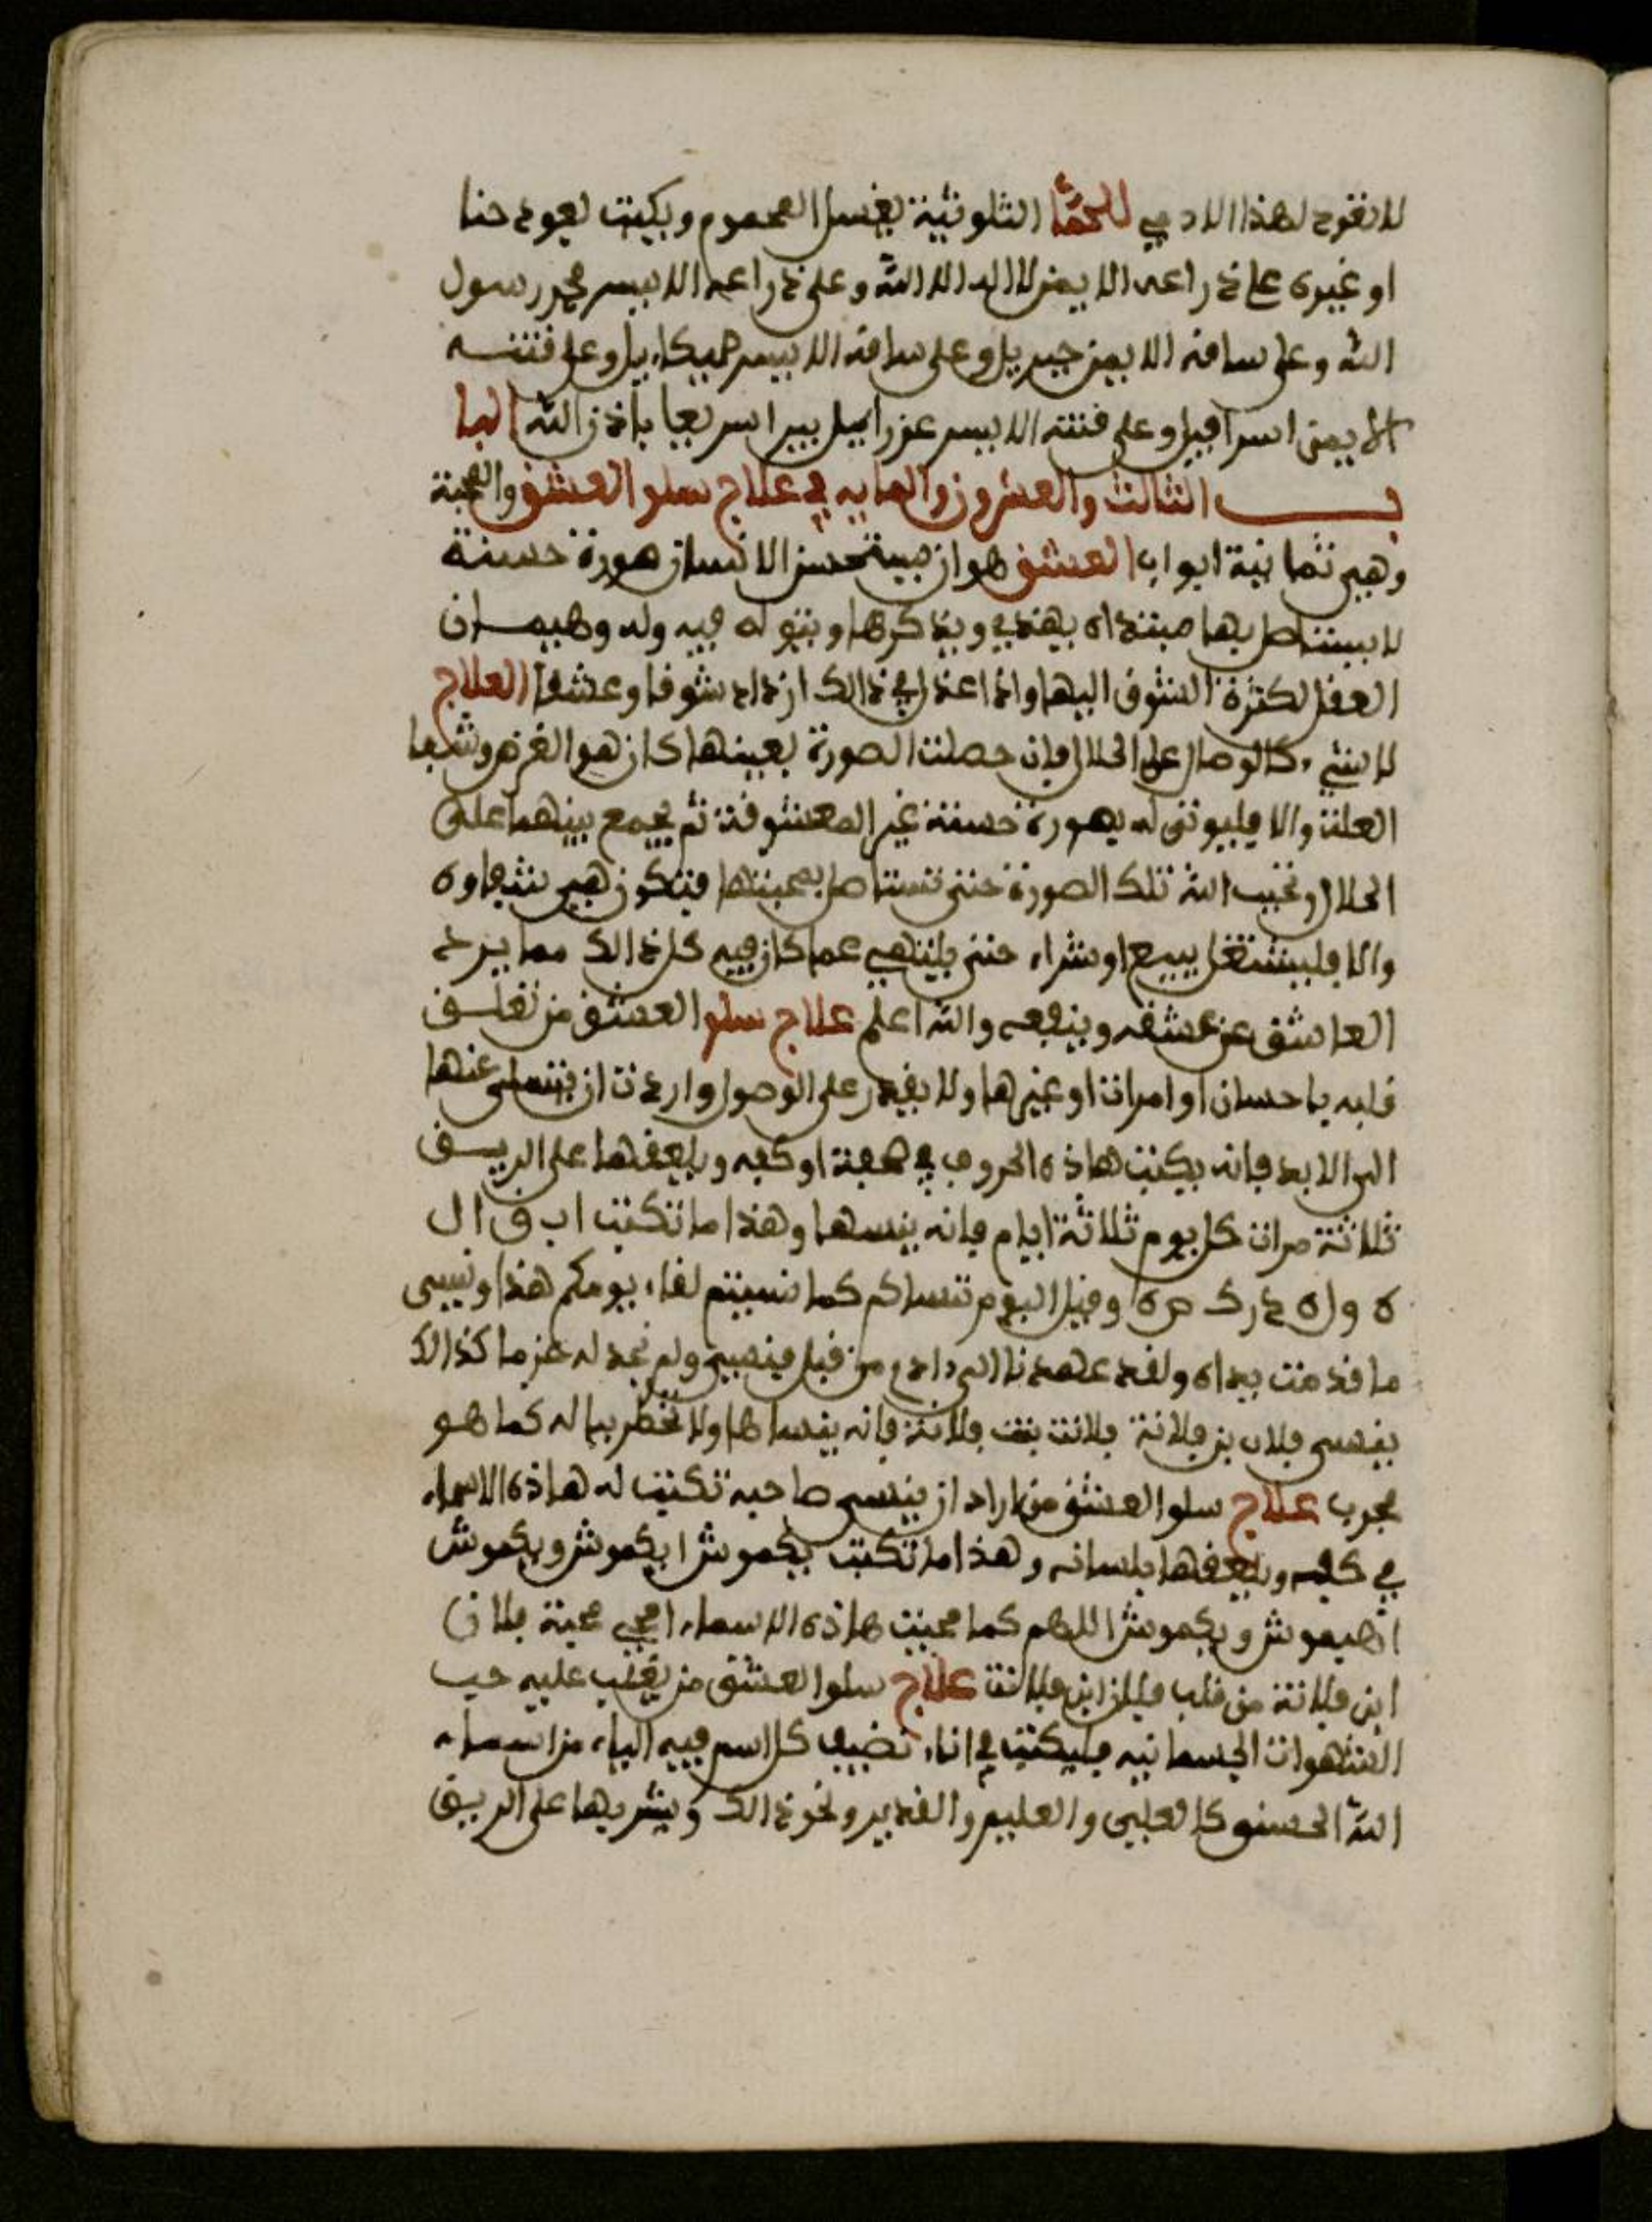 لا تفوح لهذا الادمي للحمّا الثلوثية يغسل المحموم ويكتب بعود حنا
او غيره على ذراعه الايمن لا اله الا الله وعلى ذراعه الايسر محمد رسول
الله وعلى ساقه الايمن جبريل وعلى ساقه الايسر ميكاءيل وعلى فتته
الايمن اسرافيل وعلى فتته الايسر عزراييل يبرا سريعا باذن الله البا
ب الثالث والعشرون والمايه في علاج سلو العشق والمحبة
وهي ثمانية ابواب العشق هو ان يستحسن الانسان صورة حسنة
لا يستاصل بها مبتداه يهذي ويذكرها ويتوله فيه وله وهيمـان
العقل لكثرة الشوق اليها واذا عذل في ذالك ازداد شوقا وعشقا العلاج
لا شيء كالوصال على الحلال فان حصلت الصورة بعينها كان هو الغرض وشفا
العلة والا فليوتى له بصورة حسنة غير المعشوقة ثم يجمع بينهما على
الحلال وتحبب اليه تلك الصورة حتى تستاصل بمحبتها فتكون هي شفاوه
والا فليشتغل ببيع او شراء حتى يلتهي عما كان فيه كل ذالك مما يرد
العاشق عن عشقه وينفعه والله اعلم علاج سلو العشق من تعلـق
قلبه باحسان او امرات او غيرها ولا يقدر على الوصول واردت ان يتسلى عنها
الى الابد فانه يكتب هاذه الحروف في صحفة او كفه ويلعقها على الريـق
ثلاثة مرات كل يوم ثلاثة ايام فانه ينسها وهذا ما تكتب اب ق ال
ه و ا ه د ر ك ص ه ا وقيل اليوم ننساكم كما نسيتم لقاء يومكم هذا ونسي
ما قدمت يداه ولقد عهدنا الى ءادم من قبل فنسي ولم نجد له عزما كذالك
ينسى فلان بن فلانة فلانت بنت فلانة فانه ينساها ولا تخطر بباله كما هو
مجرب علاج سلو العشق من اراد ان ينسى صاحبه تكتب له هاذه الاسماء
في كفه ويلعقها بلسانه وهذا ما تكتب بكموش ابكموش وبكموش
اهيموش وبكموش اللهم كما محيت هاذه الاسماء امحي محبة فلان
ابن فلانة من قلب فلان ابن فلانة علاج سلو العشق من تغلب عليه حب
الشهوات الجسمانيه فليكتب في اناء نضيف كل اسم فيه الياء من اسماء
الله الحسنى كالعلي والعليم والقدير ونحو ذالك ويشربها على الريق